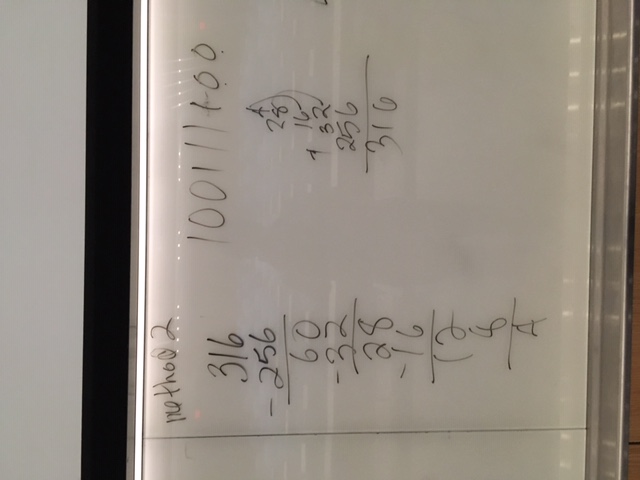 method 2
316
-256
60
-32
28
-16
12
8
4
100111100
4
28
16
+ 32
256
316